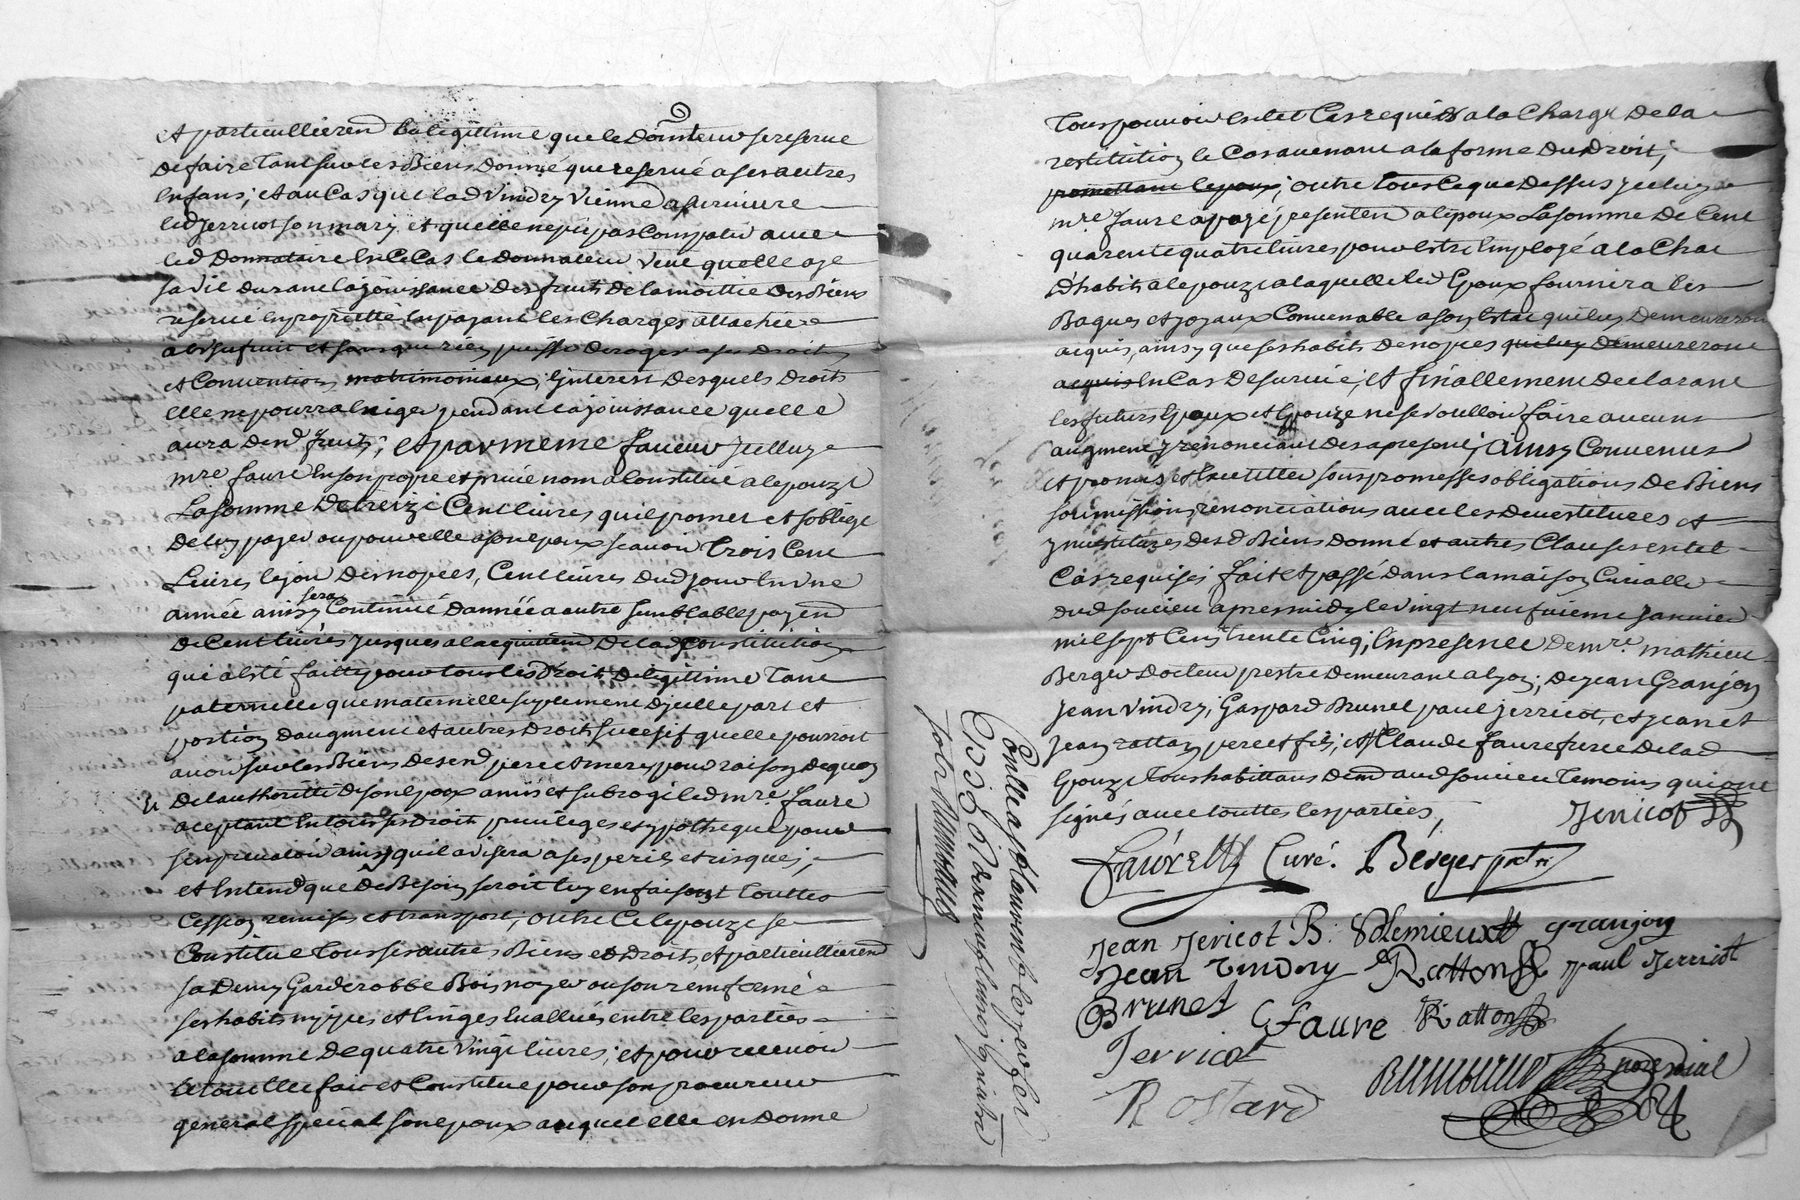 et particullieremt la legittime que le donateur se reserve
de faire tant sur les biens donné que reservé a ses autres
enfans, et au cas que lad vindry vienne a survivre
led Jerricot son mary et quelle ne put pas compatir avec
led donnataire en ce cas le donnateur veut quelle aye
sa vie durant la jouissance des fruits de la moittie des biens
reservé en proprietté en payant les charges attachée
a l'usufruit et sans que rien puisse deroger a ses droits
et conventions matrimoniaux, interest desquels droits
elle ne pourra exiger pendant la jouissance quelle
aura desd fruits; et par meme faveur icelluy
mre faure en son propre et privé nom a constitué a lepouze
La somme de treize cent livres quil promet et soblige
de luy payer ou pour elle a son epoux scavoir trois cent
Livres le jour des nopces, cent livres dud jour en une
année ainsy sera continué dannée a autre semblable payemt
de cent livres jusques a lacquittemt de lad constitution
qui a esté faitte pour tous les droits de legittime tant
paternelle que maternelle suplement dicelle part et
portion daugment et autres droits sucesif quelle pourroit
avoir sur les biens de sesd pere et mere pour raison de quoy
de lauthorité de son epoux a mis et subrogé led mre faure
aceptant en tous ses droits privileges et ypotheque pour
sen prevaloir ainsy quil avisera a ses perils et risques;
et entend que de besoin seroit luy en faisant touttes
cession remises et transport, outre ce lepouze se
Constitue tous ses autres biens et droits, et particullieremt
sa demy Garderobbe bois noyer ou sont renfermé
ses habits nippes et linges evallués entre les parties
a la somme de quatre vingt livres; et pour recevoir
le tout elle fait et constitue pour son procureur
general special son epoux auquel elle en donne
Tous pouvoir en tel cas requis a la charge de la
restitution le cas avenant a la forme du droit;
promettant lepoux; outre tous ce que dessus icelluy
mre faure a payé presentemt a lepoux La somme de cent
quarente quatre livres pour estre employé a lachat
d'habits a lepouze a laquelle led Epoux fournira les
Bagues et joyaux convenable a son estat qui luy demeureront
acquis, ainsy que ses habits de nopces qui luy demeureront
acquis en cas de survie; et finallement declarant
les futurs Epoux et Epouze ne se voulloir faire aucuns
augment y renonciant des a present; ainsy convenus
et promis et executter sous promesses obligations de biens
soumissions, renonciations avec les devestitures et
investitures desd biens donné et autres clauses en tel
cas requises fait et passé dans la maison curialle
dud soucieu apres midy le vingt neufvieme janvier
mil sept cent trente cinq, en presence de mre. mathieu
Berger docteur prestre demeurant a lyon; de jean Granjon
jean vindry, Gaspard Brunet paul jerricot, et jean et
jean ratton pere et fils; et sr Claude faure frere de lad
Epouze tous habittans demd aud soucieu temoins qui ont
signés avec touttes les parties,
Jerricot
Faure Curé. Berger ptre
Jean Jericot B. Dlemieux granjon
Jean vindry Ratton paul Jerricot
Brunet C faure Ratton
Jerricot
Rostard
nore royal